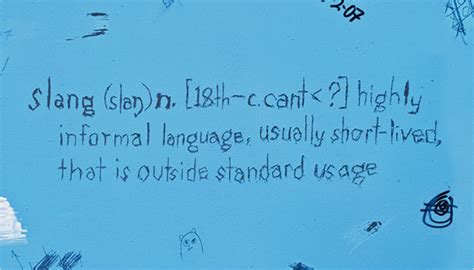 2.07
slang (slaŋ) n. [18th-c. cant < ?] highly
informal language, usually short-lived,
that is outside standard usage